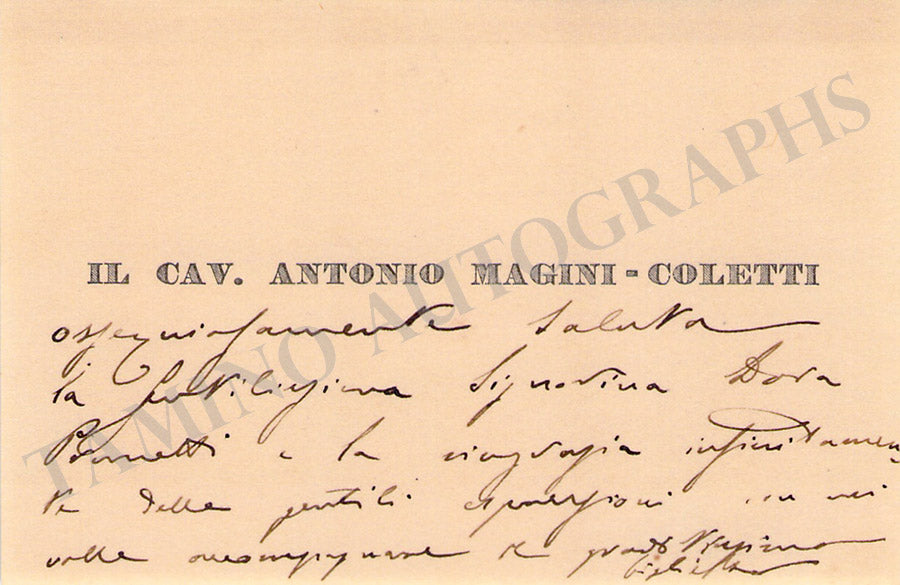 IL CAV. ANTONIO MAGINI-COLETTI
ossequiosamente saluta
la Gentilissima Signorina Dora
e la ringrazia infinitamen-
te delle gentili espressioni con cui
volle accompagnare il graditissimo
biglietto
TAMINO AUTOGRAPHS